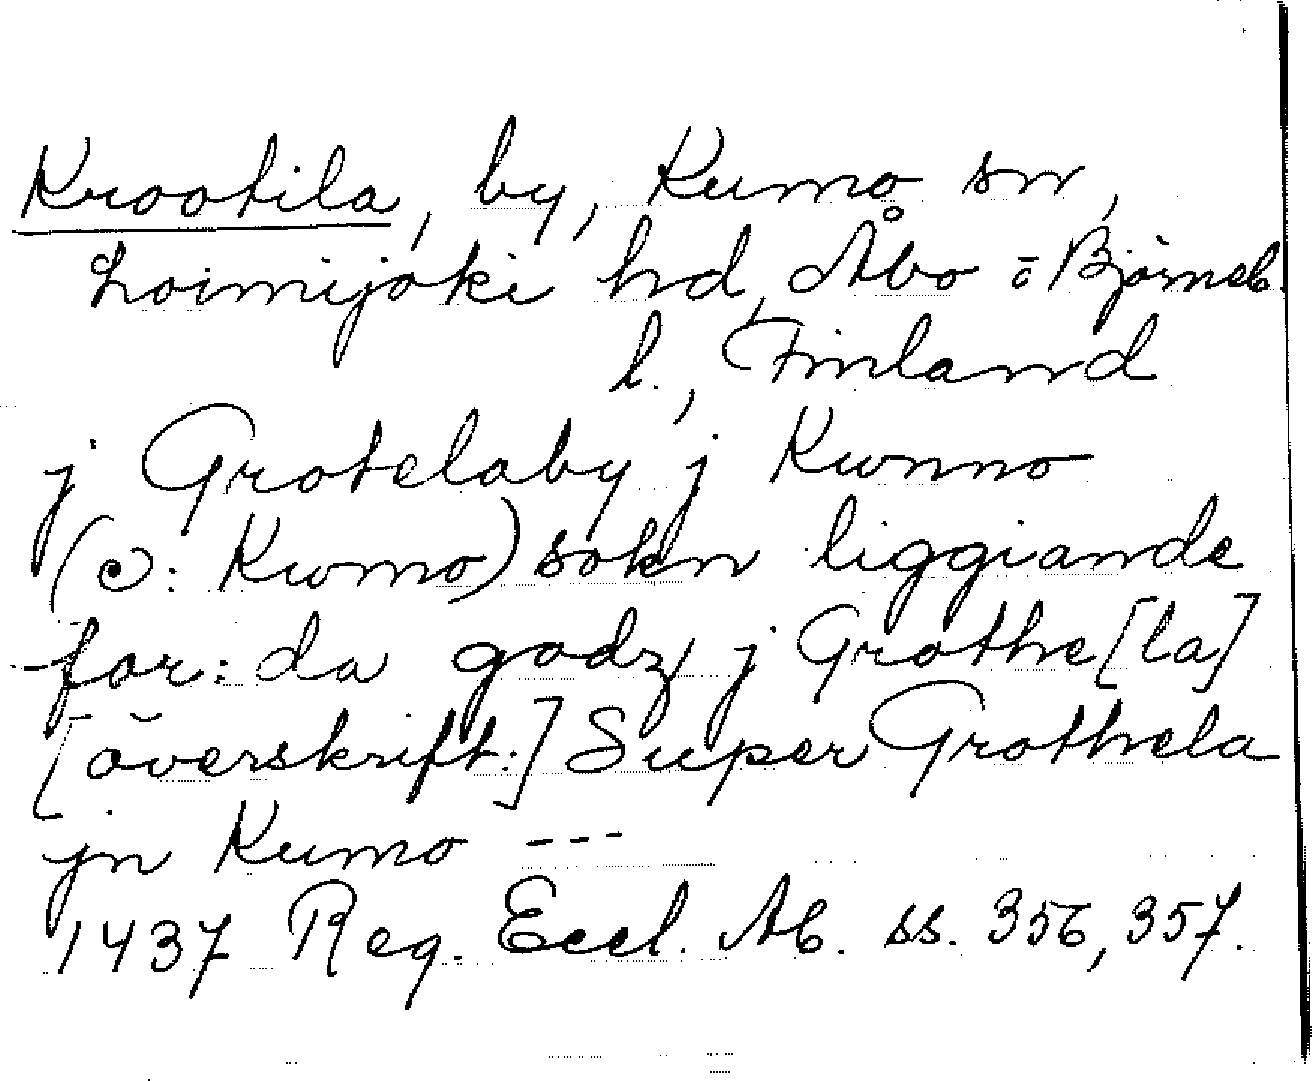 Krootila, by, Kumo sn,
Loimijoki hd, Åbo o Björneb.
l., Finland
j Grotelaby j Kwmno
(ɔ: Kwmo) sokn liggiande
for:da godz j Grothe[la]
[överskrift:] Super Grothela
jn Kumo ---
1437 Reg. Eccl. Ab. ss. 356, 357.